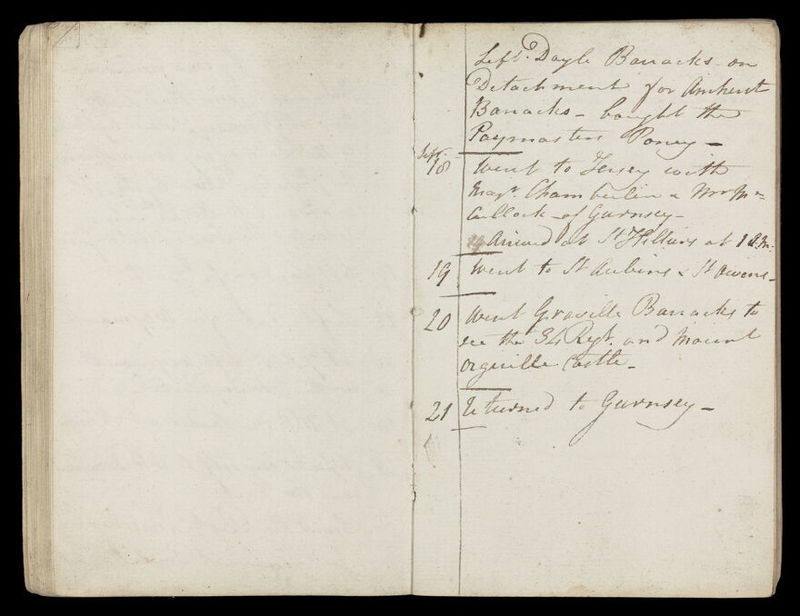 Left Doyle Barracks on
Detachment for Amherst
Barracks - bought the
Paymasters Poney -
Sept. 18 Went to Jersey with
Majr. Chamberlin & Mr Mc
Cullock - of Guernsey -
Arived at St Helliers at 1 P.M.
19 Went to St Aubins & St Owens -
20 Went Groville Barracks to
see the 34 Regt. and Mount
Orguille Castle -
21 Returned to Guernsey -